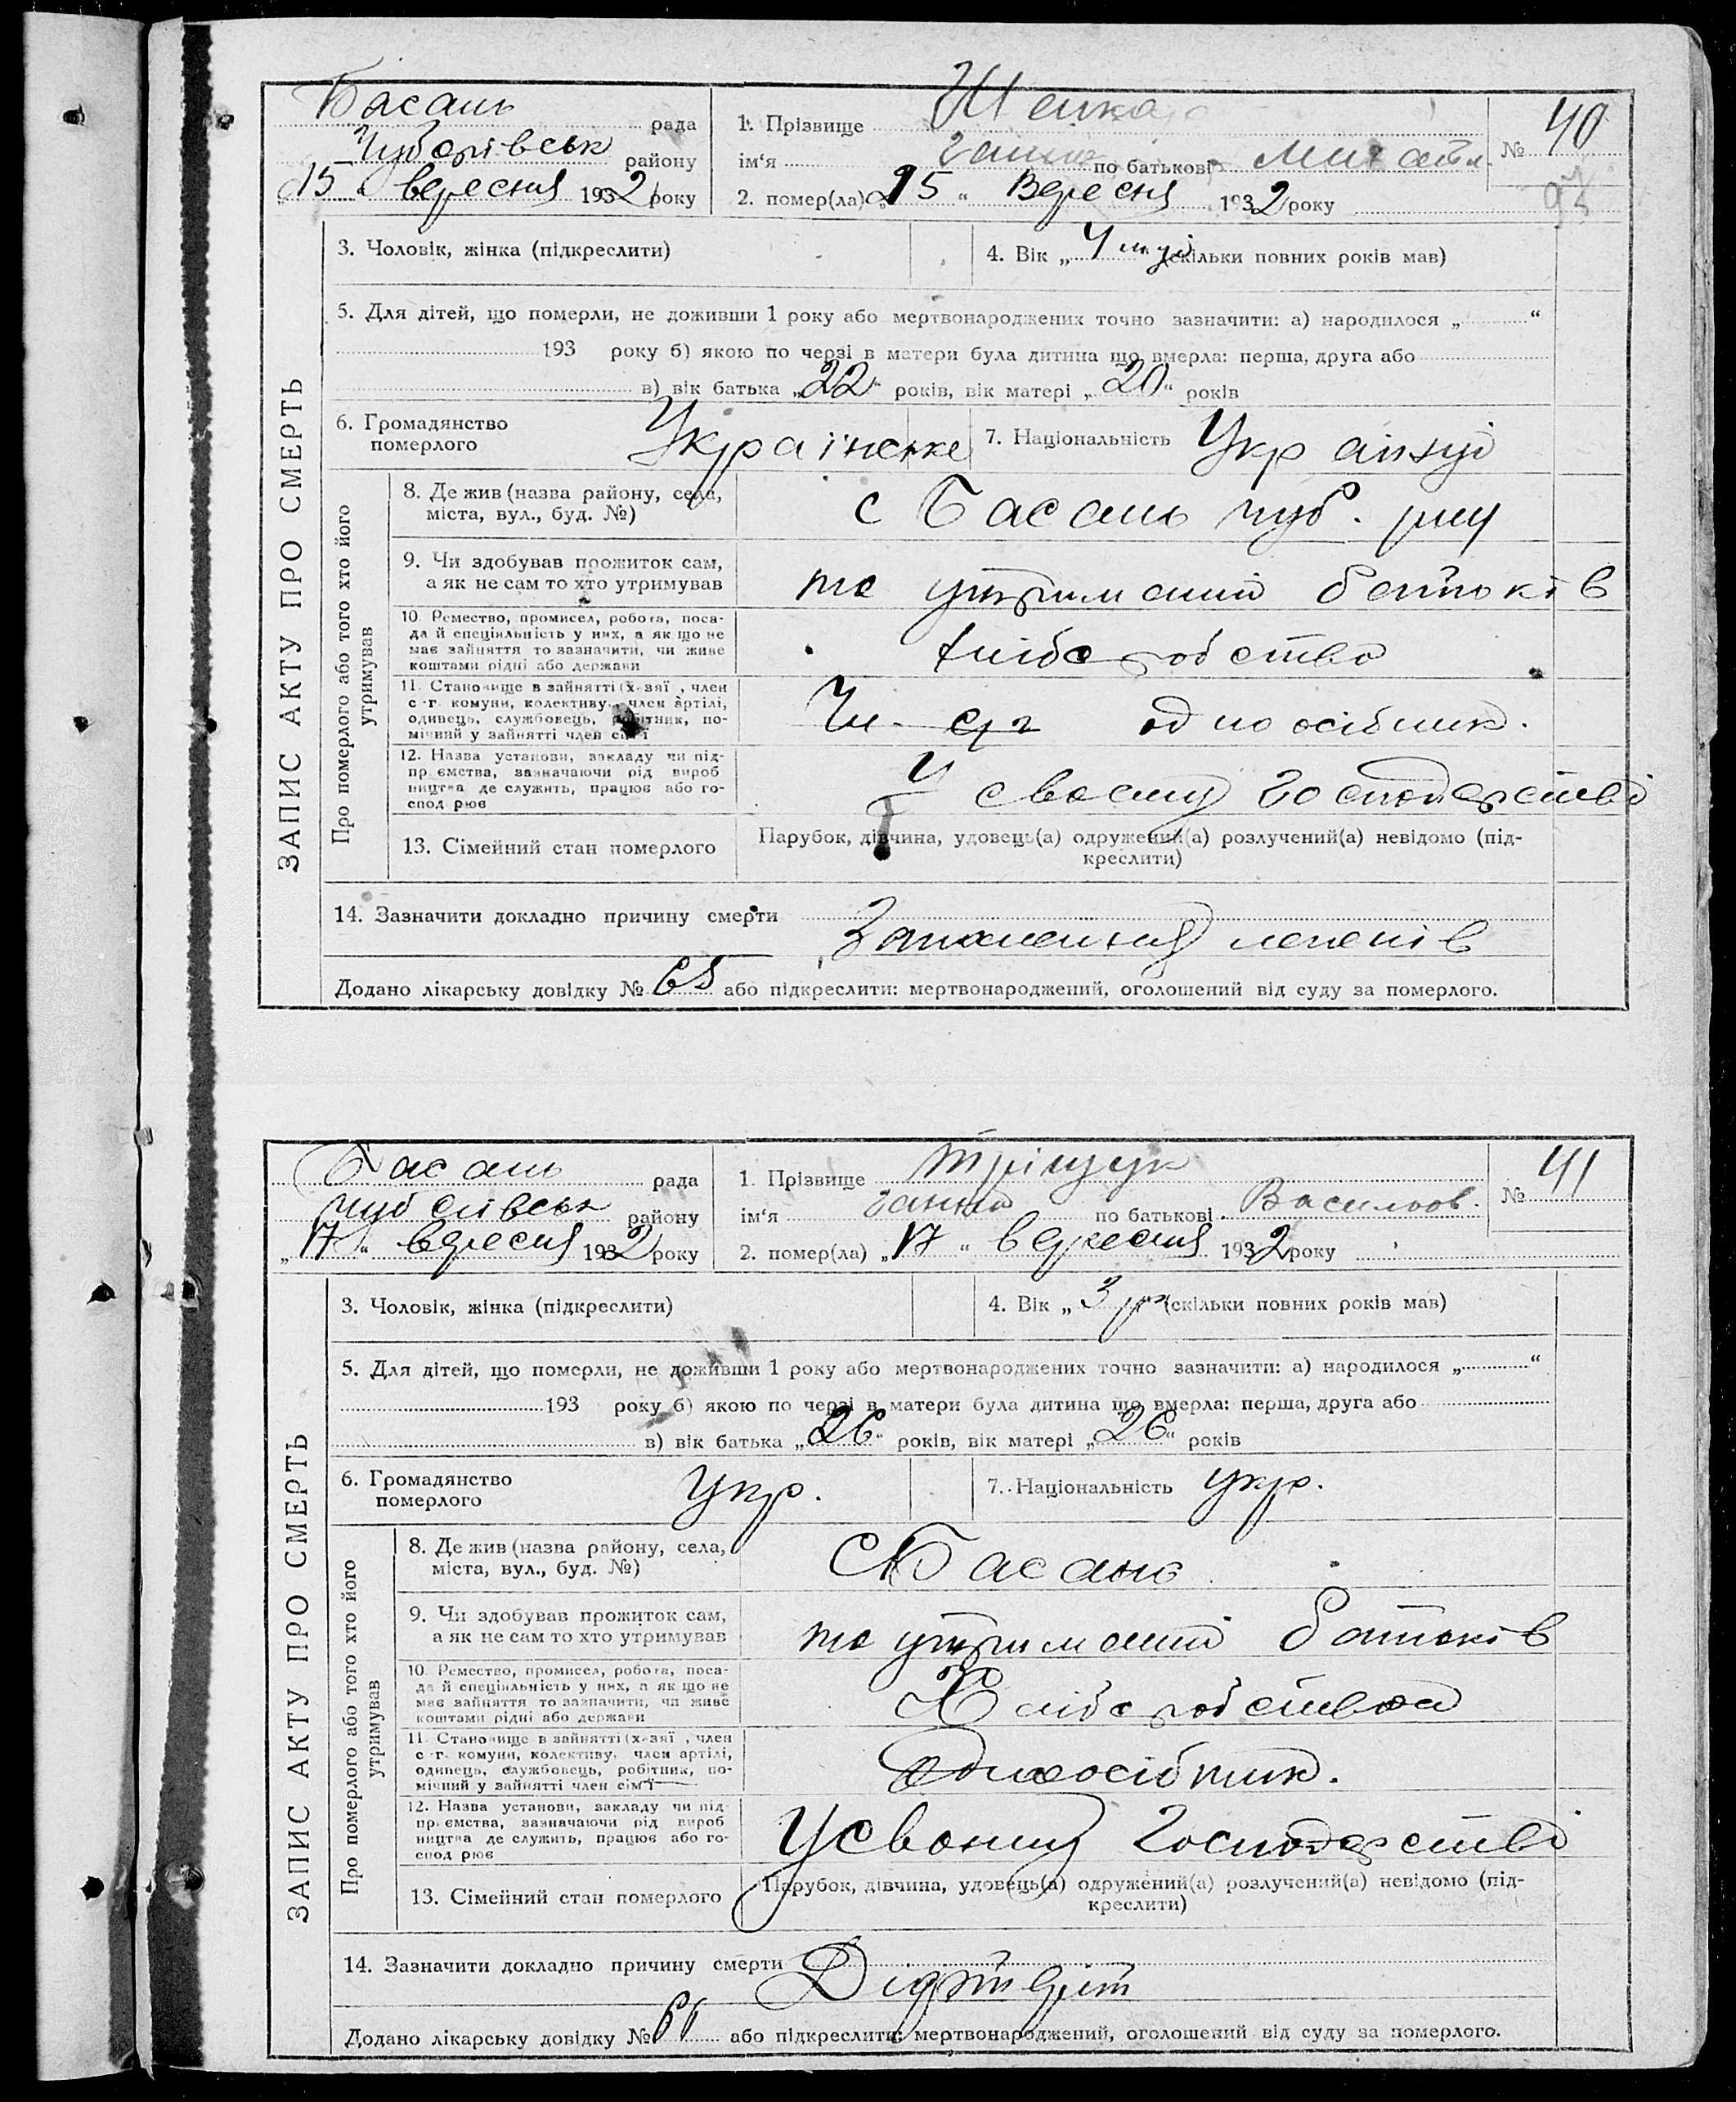 Басань рада
Чубарівськ району
„15“ вересня 1932 року
1. Прізвище
ім'я по батькові
2. помер(ла) „15“ Вересня 1932 року
№ 40
3. Чоловік, жінка (підкреслити)
4. Вік „ (скільки повних років мав)
5. Для дітей, що померли, не доживши 1 року або мертвонароджених точно зазначити: а) народилося „ “
193 року б) якою по черзі в матери була дитина що вмерла: перша, друга або
в) вік батька „22“ років, вік матері „20“ років
6. Громадянство
померлого
Українське
7. Національність
8. Де жив (назва району, села,
міста, вул., буд. №)
с Басань чуб. р-ну
9. Чи здобував прожиток сам,
а як не сам то хто утримував
на утриманні батьків
10. Ремество, промисел, робота, поса-
да й спеціяльність у них, а як що не
має зайняття то зазначити, чи живе
коштами рідні або держави
хліборобство
11. Становище в зайнятті (х-зяї , член
с-г. комуни, колективу, член артілі,
одинець, службовець, робітник, по-
мічний у зайнятті член сім'ї
одноосібник.
12. Назва установи, закладу чи під-
пр ємства, зазначаючи рід вироб
ництва де служить, працює або го-
спод рює
У своєму господарстві
13. Сімейний стан померлого
Парубок, дівчина, удовець(а) одружений(а) розлучений(а) невідомо (під-
креслити)
14. Зазначити докладно причину смерти
Запалення легенів
Додано лікарську довідку № 65 або підкреслити: мертвонароджений, оголошений від суду за померлого.
ЗАПИС АКТУ ПРО СМЕРТЬ
Про померлого або того хто його
утримував
Басань рада
району
„17“ вересня 1932 року
1. Прізвище Тріщук
ім'я Ганна по батькові Васильов.
2. помер(ла) „17“ вересня 1932 року
№ 41
3. Чоловік, жінка (підкреслити)
4. Вік „3 р (скільки повних років мав)
5. Для дітей, що померли, не доживши 1 року або мертвонароджених точно зазначити: а) народилося „ “
193 року б) якою по черзі в матери була дитина що вмерла: перша, друга або
в) вік батька „26“ років, вік матері „26“ років
6. Громадянство
померлого
Укр.
7. Національність укр.
8. Де жив (назва району, села,
міста, вул., буд. №)
С Басань
9. Чи здобував прожиток сам,
а як не сам то хто утримував
на утриманні батьків
10. Ремество, промисел, робота, поса-
да й спеціяльність у них, а як що не
має зайняття то зазначити, чи живе
коштами рідні або держави
11. Становище в зайнятті (х-зяї , член
с-г. комуни, колективу, член артілі,
одинець, службовець, робітник, по-
мічний у зайнятті член сім'ї
Одноосібник.
12. Назва установи, закладу чи під
пр ємства, зазначаючи рід вироб
ництва де служить, працює або го-
спод рює
У своєму господарстві
13. Сімейний стан померлого
Парубок, дівчина, удовець(а) одружений(а) розлучений(а) невідомо (під-
креслити)
14. Зазначити докладно причину смерти
Додано лікарську довідку № або підкреслити: мертвонароджений, оголошений від суду за померлого.
ЗАПИС АКТУ ПРО СМЕРТЬ
Про померлого або того хто його
утримував